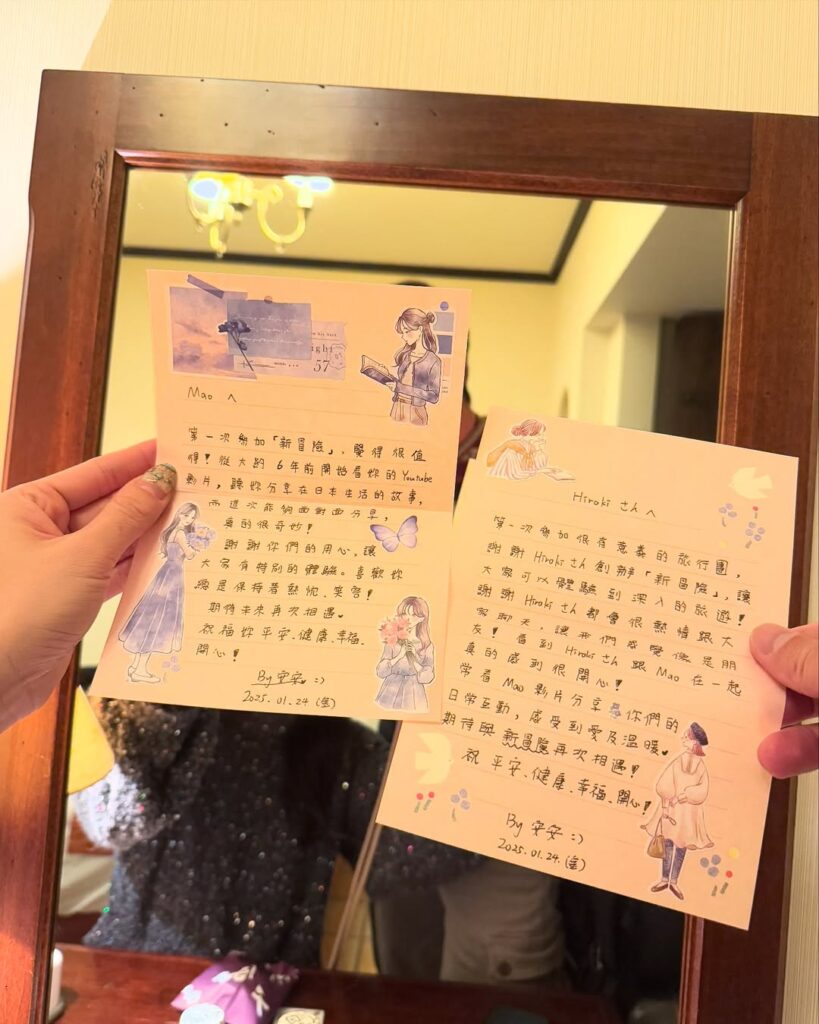 ight
57
Mao へ
第一次參加「新冒險」，覺得很值
得！從大約 6 年前開始看妳的 Youtube
影片，聽妳分享在日本生活的故事，
而這次能夠面對面分享，
真的很奇妙！
謝謝你們的用心，讓
大家有特別的體驗。喜歡妳
總是保持著熱忱、笑容！
期待未來再次相遇。
祝福妳平安、健康、幸福、
開心！
By 安安 :)
2025.01.24 (金)
Hiroki さんへ
第一次參加很有意義的旅行團，
謝謝 Hiroki さん創辦「新冒險」，讓
大家可以體驗到深入的旅遊！
謝謝 Hiroki さん都會很熱情跟大
家聊天，讓我們感覺像是朋
友！看到 Hiroki さん跟 Mao 在一起
真的感到很開心！
常看 Mao 影片分享你們的
日常互動，感受到愛及溫暖。
期待與新冒險再次相遇！
祝 平安、健康、幸福、開心！
By 安安 :)
2025.01.24 (金)